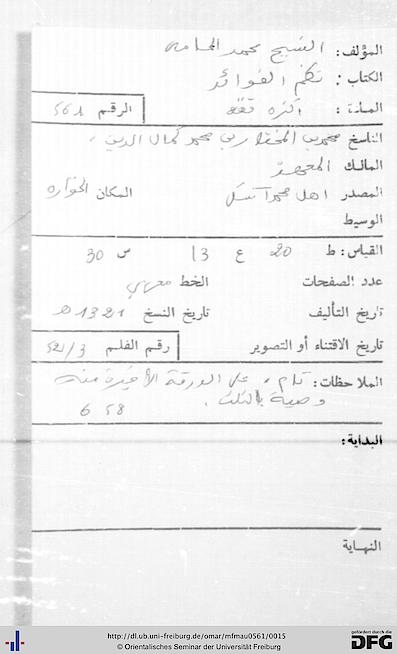 المؤلف: الشيخ محمد المامي
الكتاب: نظم الفوائد
المادة: فقه الرقم 561
الناسخ محمد بن المختار بن محمد كمال الدين
المالك المعهد
المصدر اهل المكان
الوسيط
القياس: ط 20 ع 13 س 30
عدد الصفحات الخط
تاريخ التأليف تاريخ النسخ 1321 هـ
تاريخ الاقتناء أو التصوير رقم الفلم
الملاحظات: تام، على الورقة الأخيرة منه
وصية بالثلث. 658
البداية:
النهاية
http://dl.ub.uni-freiburg.de/omar/mfmau0561/0015
© Orientalisches Seminar der Universität Freiburg
gefördert durch die
DFG